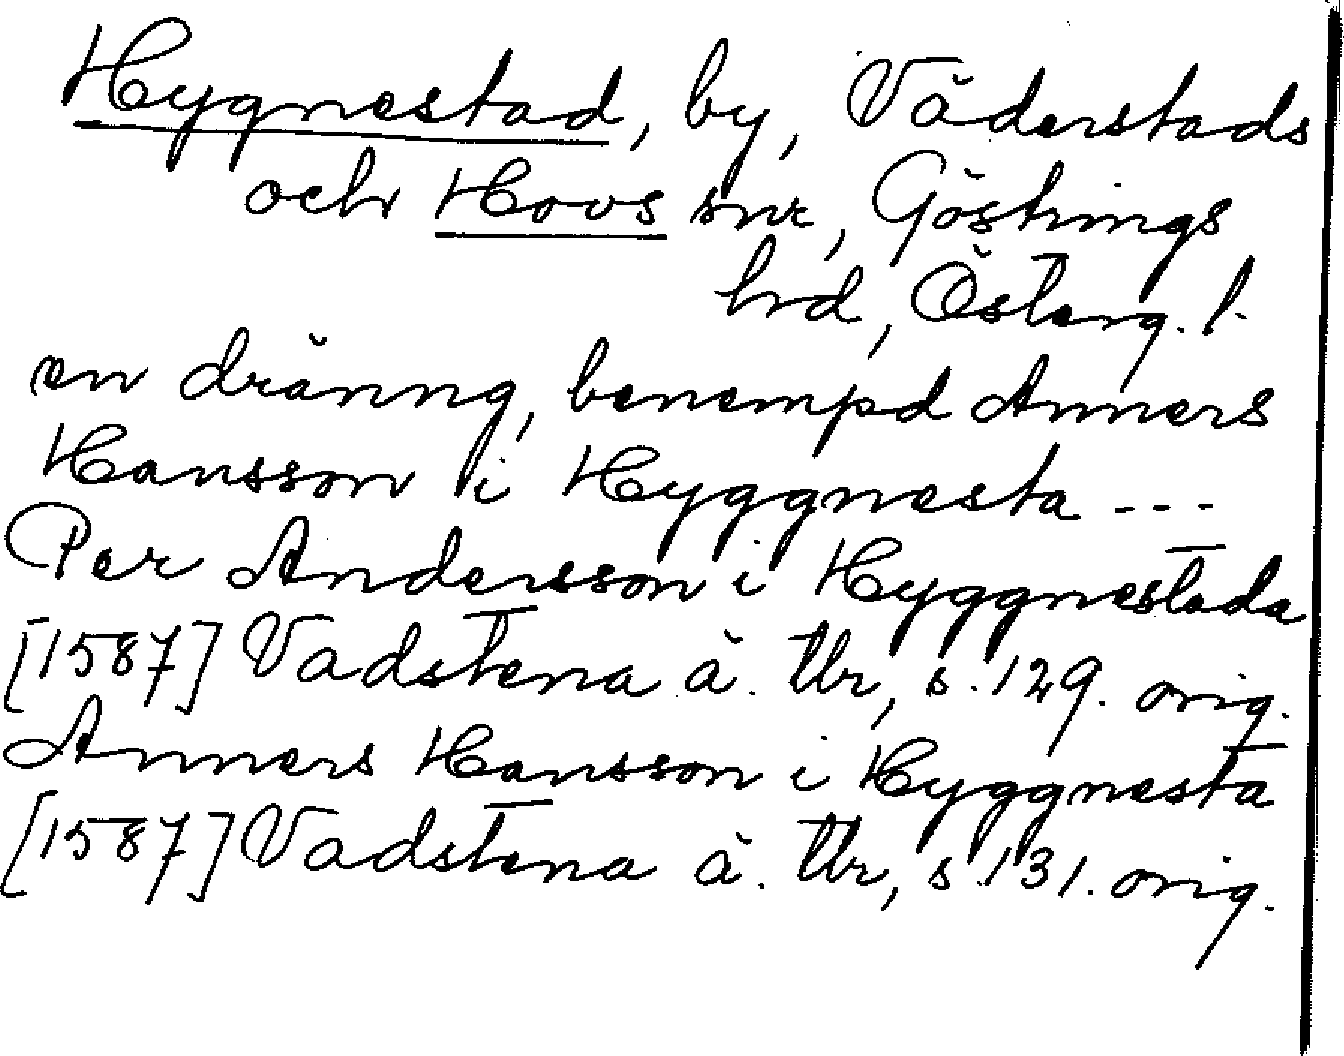 Hygnestad, by, Väderstads
och Hovs snr, Göstrings
hrd, Österg. l.
en dränng, benempd Anners
Hansson i Hyggnesta ---
Per Andersson i Hyggnestada
[1587] Vadstena ä. tbr, s. 129. orig.
Anners Hansson i Hyggnesta
[1587] Vadstena ä. tbr, s. 131. orig.